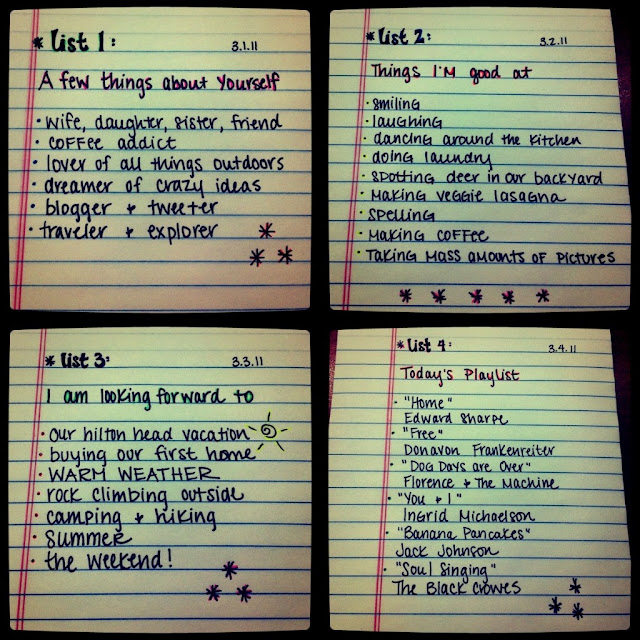 * List 1:
3.1.11
A few things about Yourself
• wife, daughter, sister, friend
• coffee addict
• lover of all things outdoors
• dreamer of crazy ideas
• blogger + tweeter
• traveler + explorer
* List 2:
3.2.11
Things I'm good at
• smiling
• laughing
• dancing around the kitchen
• doing laundry
• spotting deer in our backyard
• making veggie lasagna
• spelling
• making coffee
• taking mass amounts of pictures
* List 3:
3.3.11
I am looking forward to
• our hilton head vacation
• buying our first home
• WARM WEATHER
• rock climbing outside
• camping + hiking
• summer
• the weekend!
* List 4:
3.4.11
Today's Playlist
• "Home"
Edward Sharpe
• "Free"
Donavon Frankenreiter
• "Dog Days are Over"
Florence + The Machine
• "You + I"
Ingrid Michaelson
• "Banana Pancakes"
Jack Johnson
• "Soul Singing"
The Black Crowes